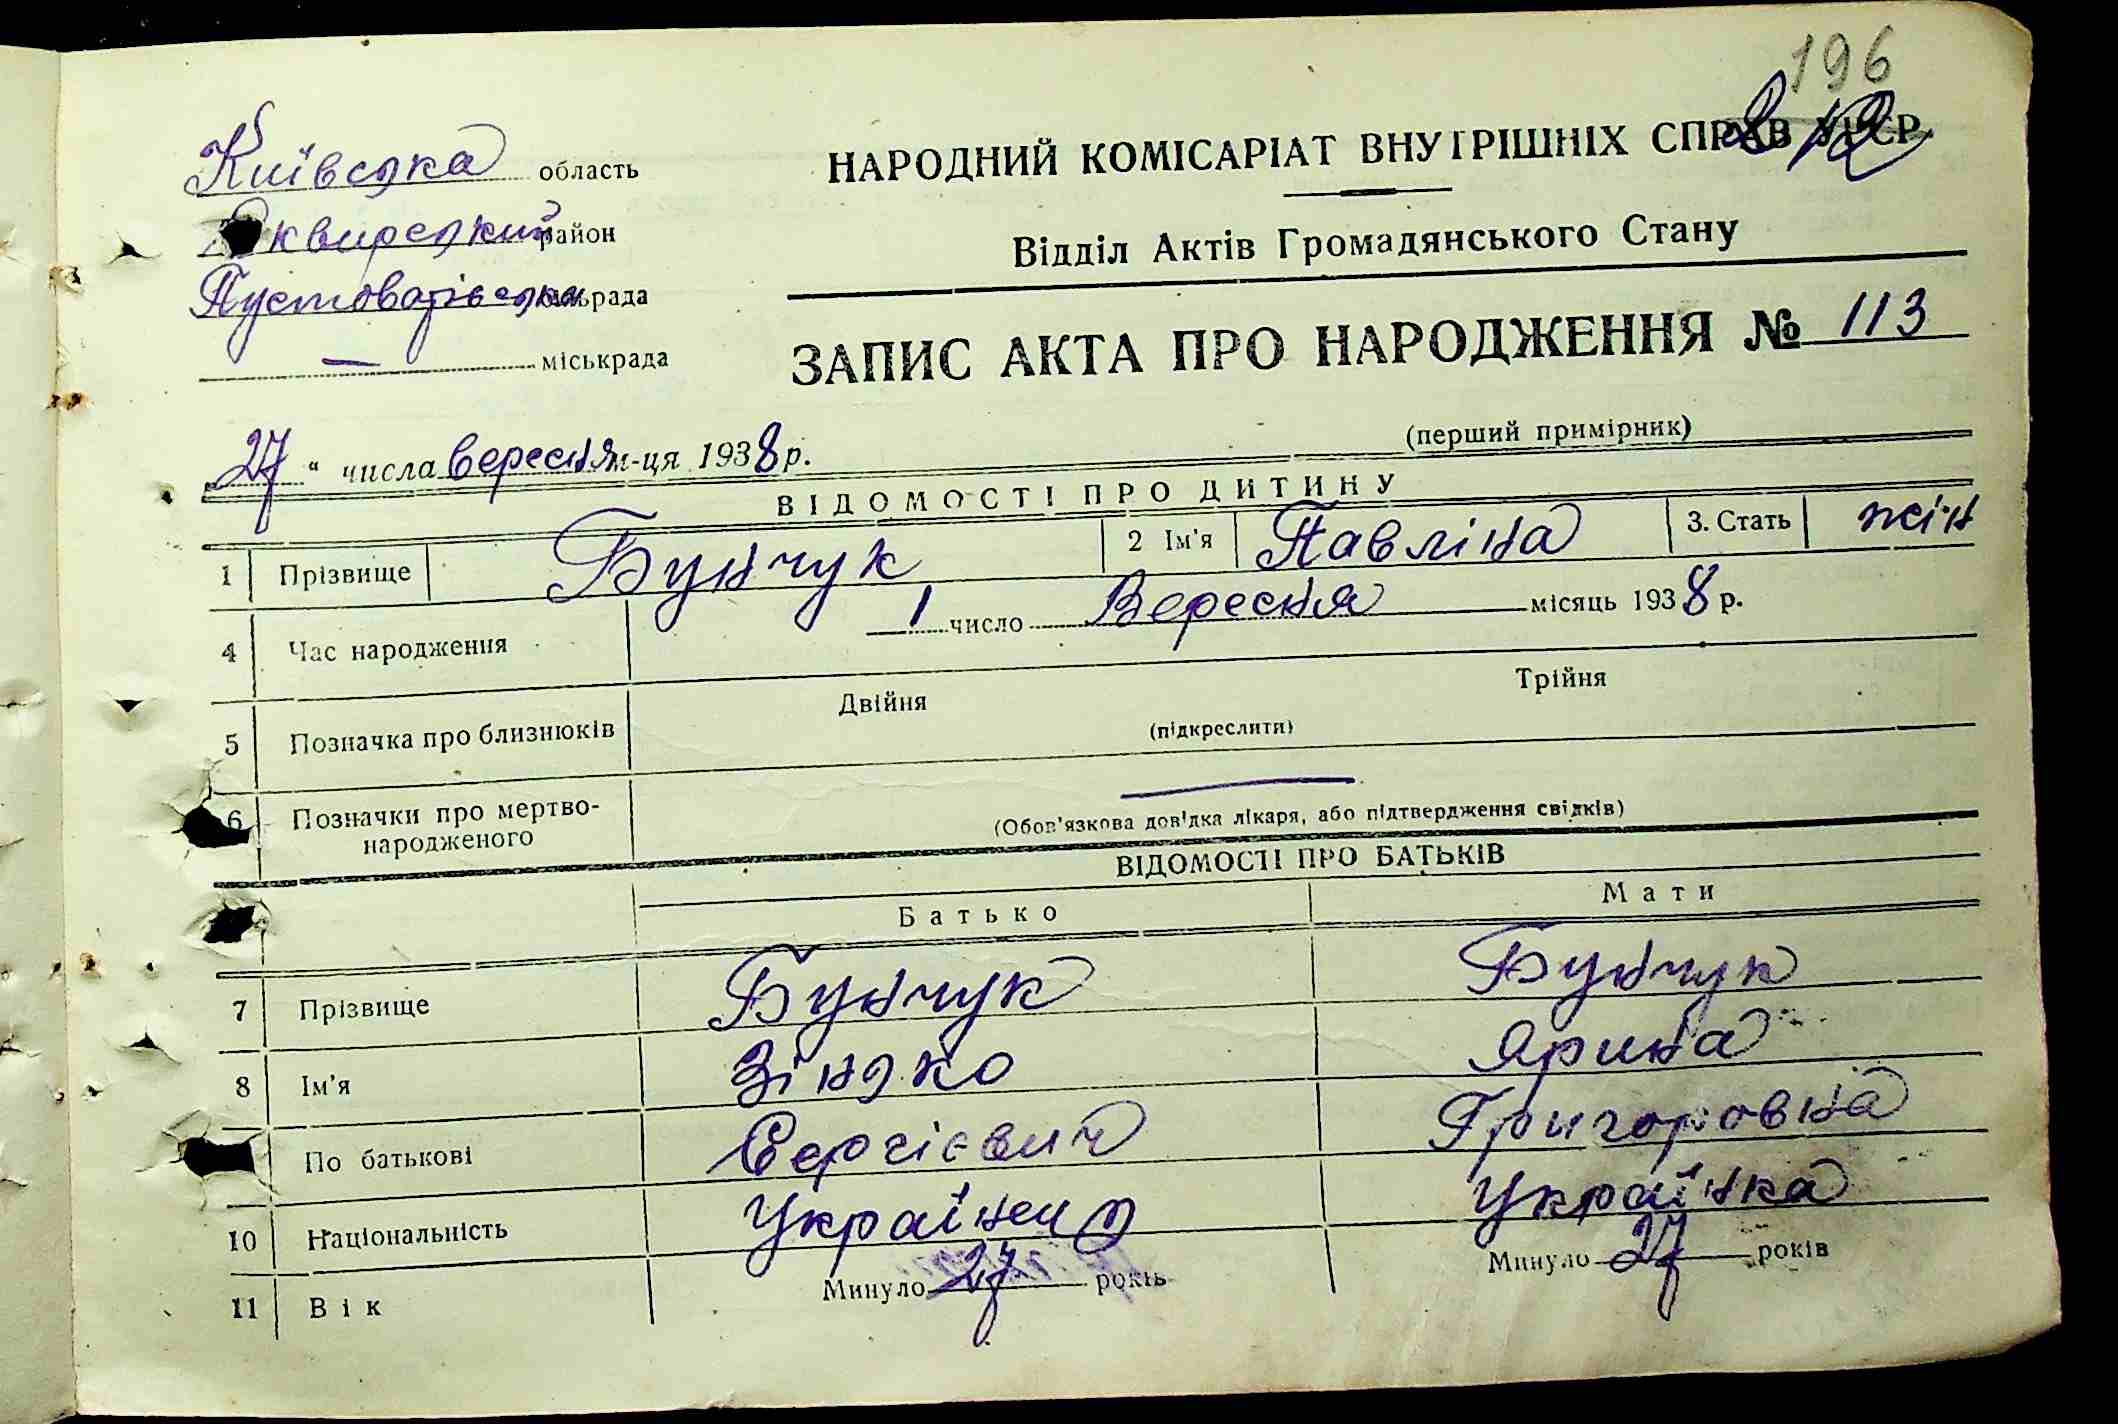 196
212
Київська область
НАРОДНИЙ КОМІСАРІАТ ВНУТРІШНІХ СПРАВ УРСР
Сквирський район
Відділ Актів Громадянського Стану
Пустоварівська сільрада
міськрада
ЗАПИС АКТА ПРО НАРОДЖЕННЯ № 113
(перший примірник)
27 " числа вересня м-ця 1938 р.
ВІДОМОСТІ ПРО ДИТИНУ
1 Прізвище Бунчук 2 Ім'я Павліна 3. Стать жін
4 Час народження 1 число Вересня місяць 1938 р.
5 Позначка про близнюків Двійня Трійня
(підкреслити)
6 Позначки про мертво-
народженого
(Обов'язкова довідка лікаря, або підтвердження свідків)
ВІДОМОСТІ ПРО БАТЬКІВ
Батько Мати
7 Прізвище Бунчук Бунчук
8 Ім'я Зінько Ярина
По батькові Сергієвич Григоровна
10 Національність Українець Українка
11 Вік Минуло 27 років Минуло 27 років